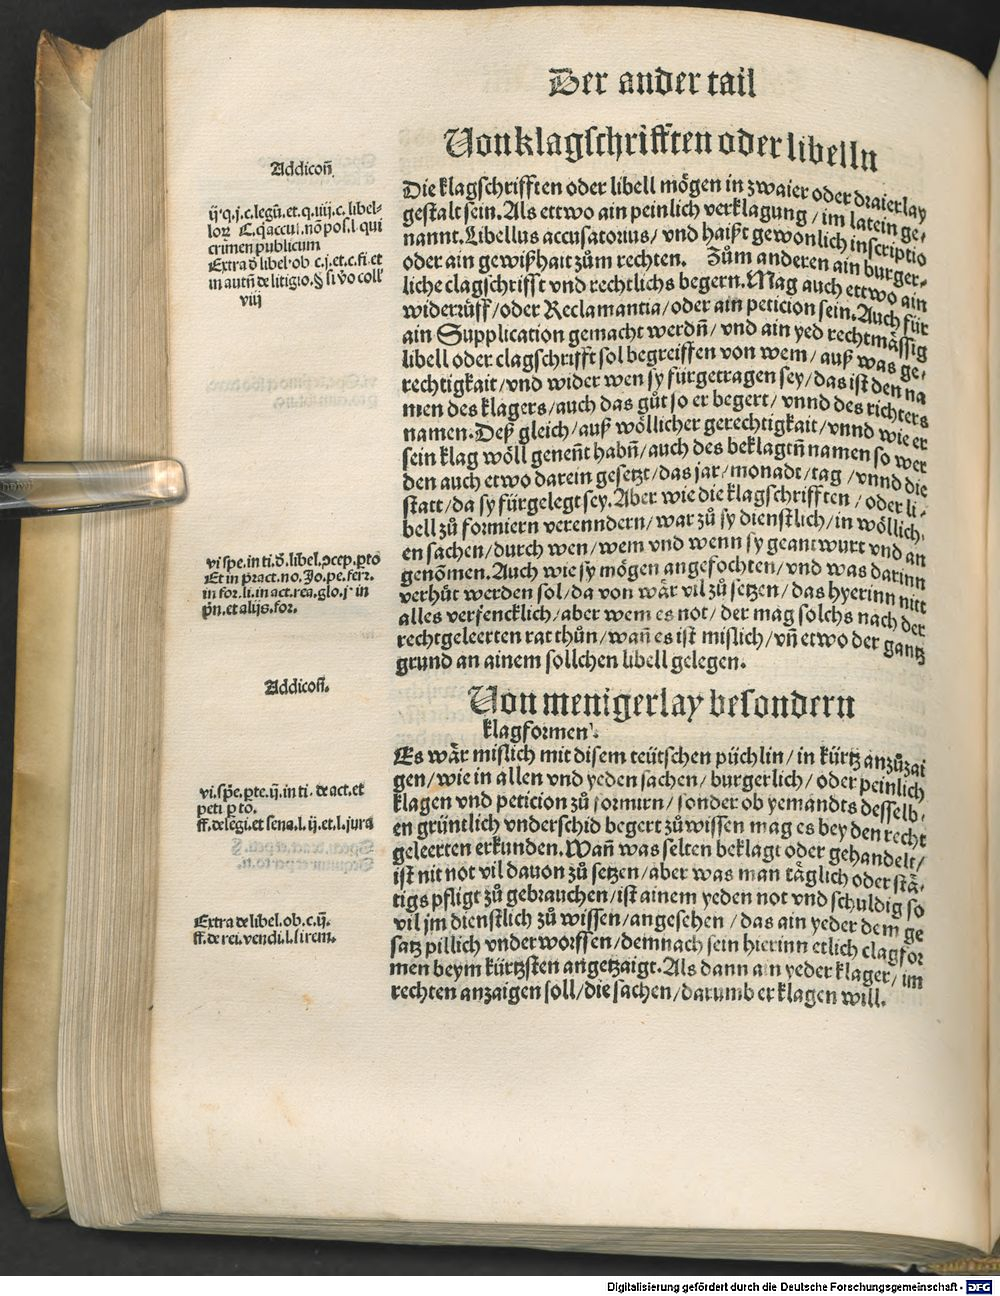 Der ander tail
Von klagschrifften oder libelln
Addicon̄
ij·q.j.c.legū.et.q.iiij.c. libel-
loꝝ C.q̄ accus.nō pos.l qui
crimen publicum
Extra ð libel·ob c.j.et.c.fi.et
in autn̄ de litigio.§ si v̊o coll'
viij
Die klagschrifften oder libell mögen in zwaier oder draierlay
gestalt sein. Als ettwo ain peinlich verklagung / im latein ge-
nannt. Libellus accusatorius / vnd haißt gewonlich inscriptio
oder ain gewißhait zům rechten. Zům anderen ain burger-
liche clagschrifft vnd rechtlichs begern. Mag auch ettwo ain
widerrůff / oder Reclamantia / oder ain peticion sein. Auch für
ain Supplication gemacht werdn̄ / vnd ain yed rechtmässig
libell oder clagschrifft sol begreiffen von wem / auß was ge-
rechtigkait / vnd wider wen sy fürgetragen sey / das ist den na
men des klagers / auch das gůt so er begert / vnnd des richters
namen. Deß gleich / auß wöllicher gerechtigkait / vnnd wie er
sein klag wöll genent̄ habn̄ / auch des beklagtn̄ namen so wer
den auch etwo darein gesetzt / das jar / monadt / tag / vnnd die
statt / da sy fürgelegt sey. Aber wie die klagschrifften / oder li-
bell zů formiern verenndern / war zů sy dienstlich / in wöllich-
en sachen / durch wen / wem vnd wenn sy geantwurt vnd an
genōmen. Auch wie sy mögen angefochten / vnd was darinn
verhůt werden sol / da von wär vil zů setzen / das hyerinn nitt
alles versencklich / aber wem es not / der mag solchs nach der
rechtgeleerten rat thůn / wan̄ es ist mislich / vn̄ etwo der gantz
grund an ainem sollchen libell gelegen.
vi spe. in ti. ð. libel. ↄcep. ꝑto
Et in pract. no. Jo. pe. ferr.
in for. li. in act. rea. glo. j· in
pn̄. et alijs. for.
Addicon̄.
Von menigerlay besondern
klagformen.
vi. spe. ꝑte. ij. in ti. de act. et
peti ꝑ to.
ff. de legi. et sena. l. ij. et. l. jura
Es wär mislich mit disem teütschen püchlin / in kürtz anzůzai
gen / wie in allen vnd yeden sachen / burgerlich / oder peinlich
klagen vnd peticion zů formirn / sonder ob yemandts desselb-
en grüntlich vnderschid begert zů wissen mag es bey den recht
geleerten erkunden. Wan̄ was selten beklagt oder gehandelt /
ist nit not vil dauon zů setzen / aber was man täglich oder stä-
tigs pfligt zů gebrauchen / ist ainem yeden not vnd schuldig so
vil jm dienstlich zů wissen / angesehen / das ain yeder dem ge
satz pillich vnderworffen / demnach sein hierinn etlich clagfor
men beym kürtzsten angetzaigt. Als dann ain yeder klager / im
rechten anzaigen soll / die sachen / darumb er klagen will.
Extra de libel. ob. c. ij.
ff. de rei. vendi. l. si rem.
Digitalisierung gefördert durch die Deutsche Forschungsgemeinschaft - DFG